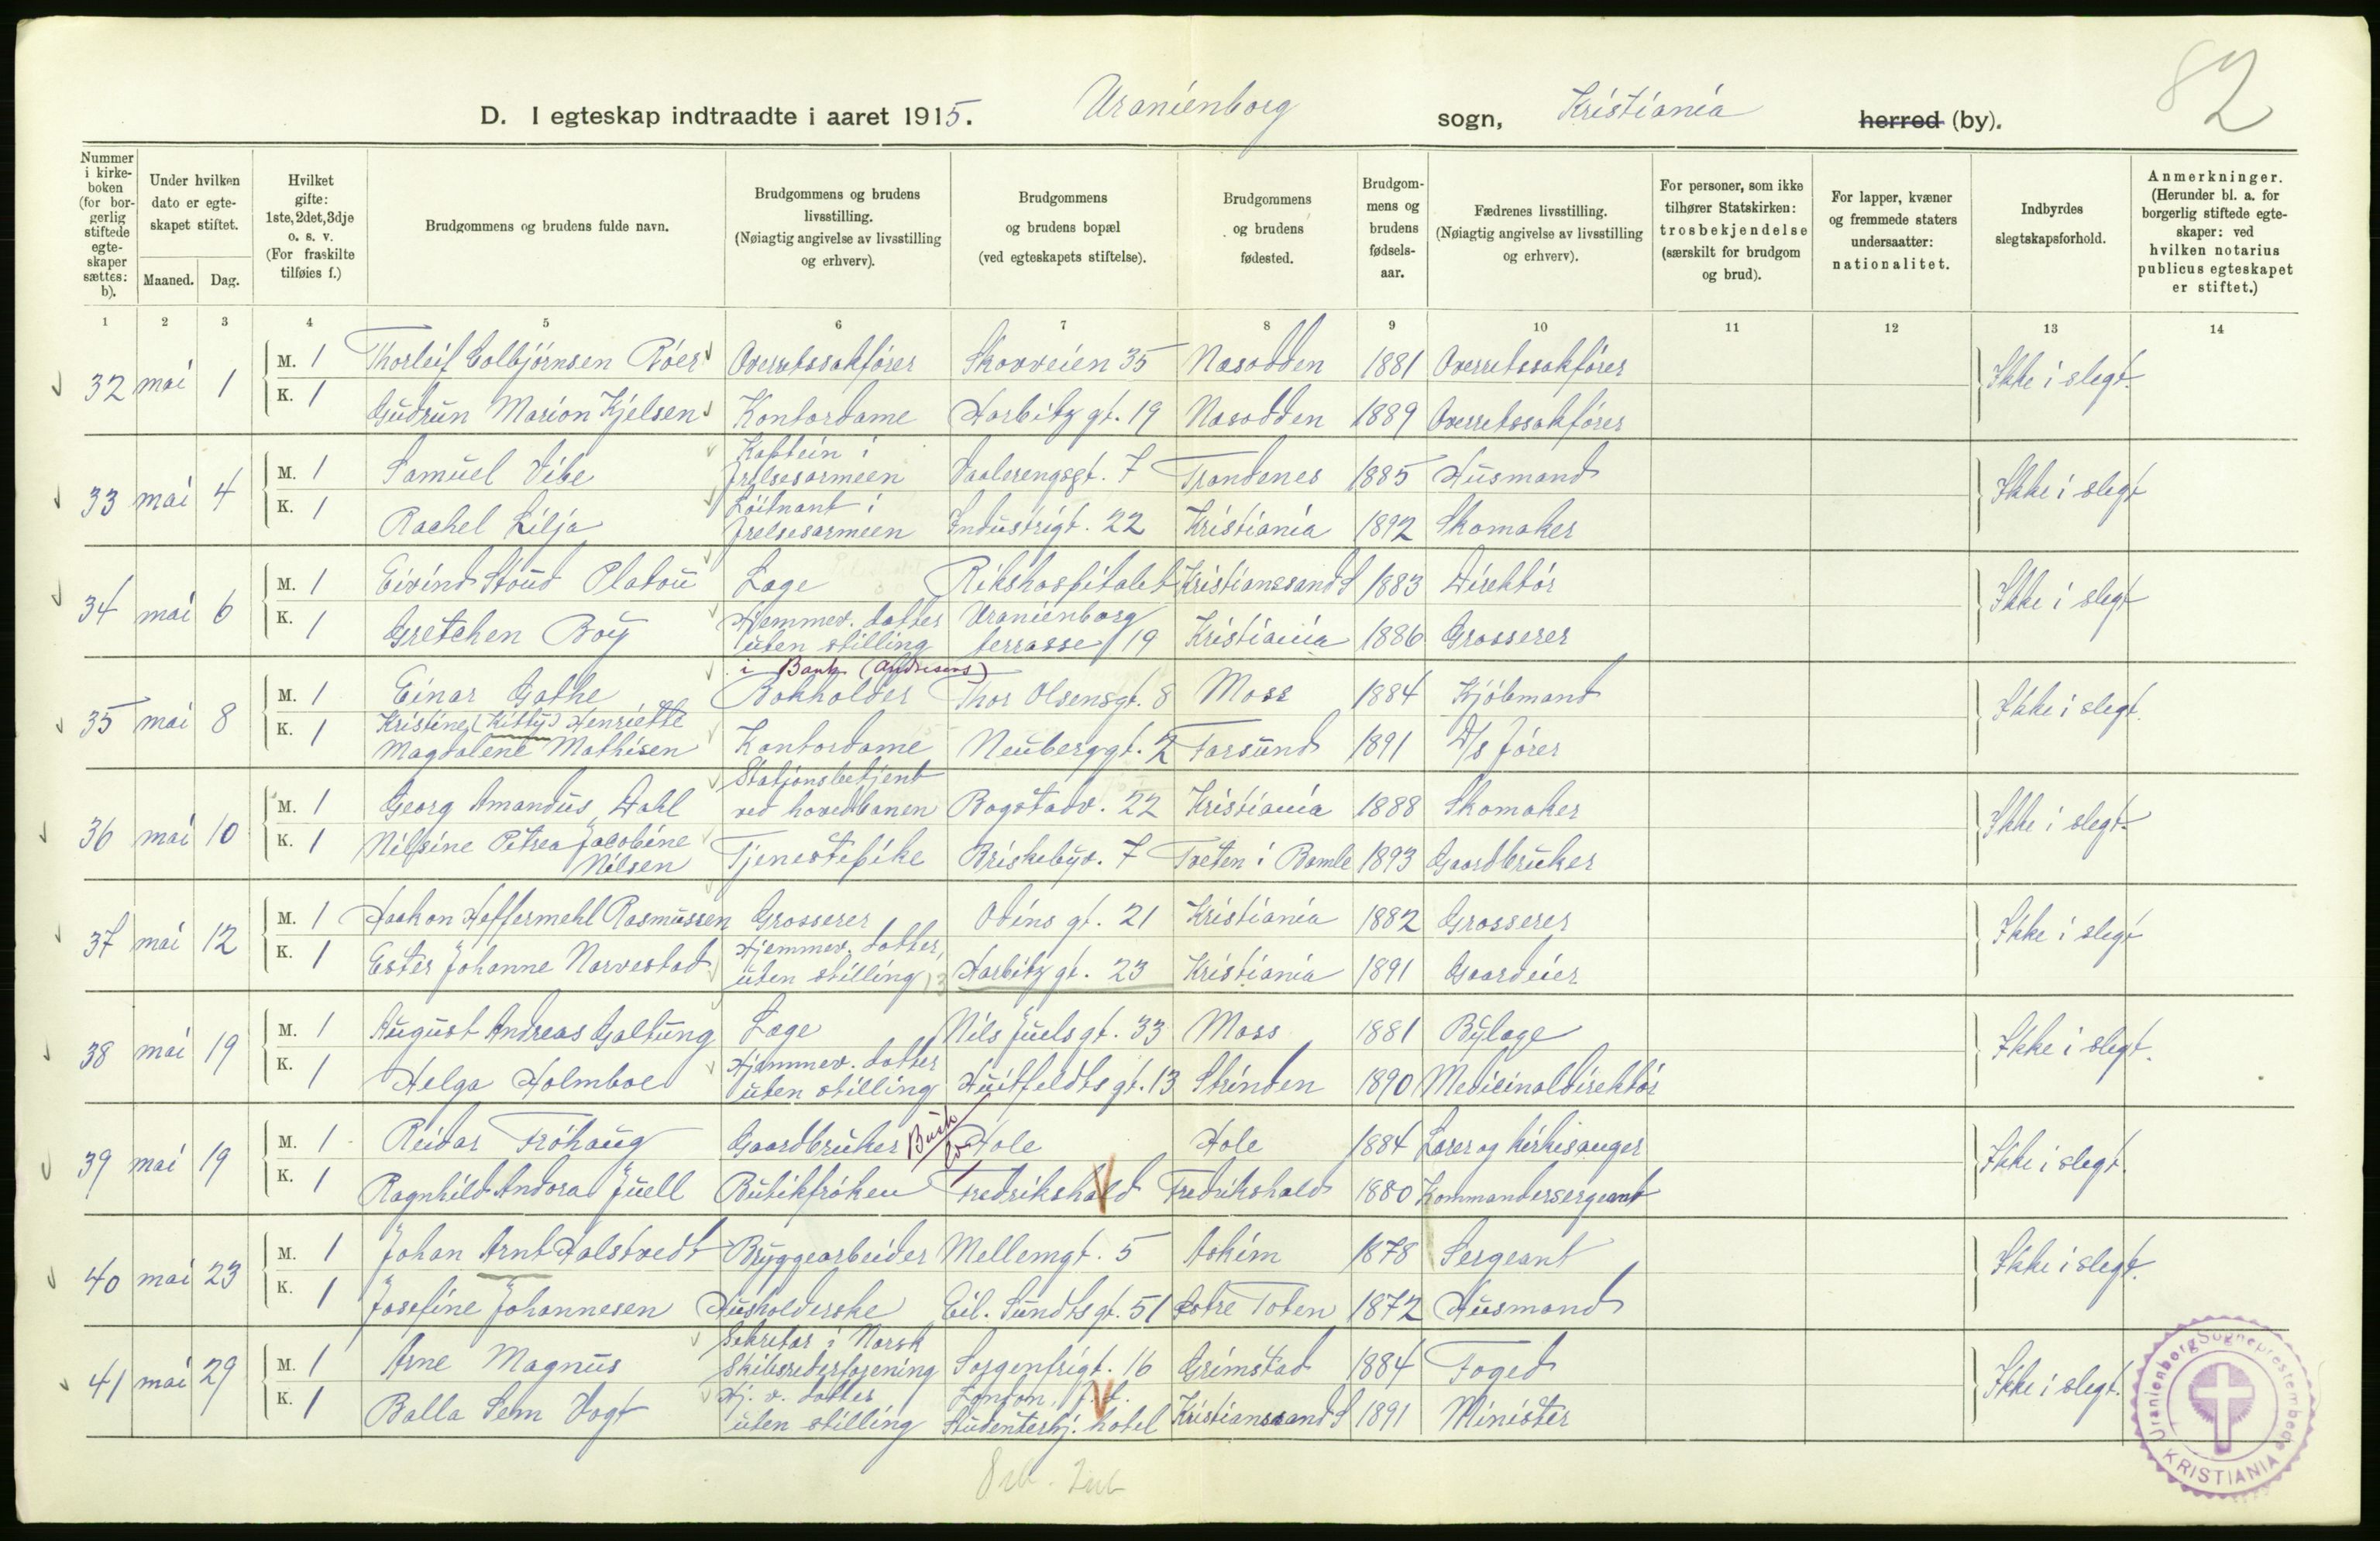 82
D. I egteskap indtraadte i aaret 1915. Uranienborg sogn, Kristiania herred (by).
Nummer i kirkeboken (for borgerlig stiftede egteskaper sættes: b).
Under hvilken dato er egteskapet stiftet.
Maaned. Dag.
Hvilket gifte: 1ste, 2det, 3dje o. s. v. (For fraskilte tilføies f.)
Brudgommens og brudens fulde navn.
Brudgommens og brudens livsstilling. (Nøiagtig angivelse av livsstilling og erhverv).
Brudgommens og brudens bopæl (ved egteskapets stiftelse).
Brudgommens og brudens fødested.
Brudgommens og brudens fødselsaar.
Fædrenes livsstilling. (Nøiagtig angivelse av livsstilling og erhverv).
For personer, som ikke tilhører Statskirken: trosbekjendelse (særskilt for brudgom og brud).
For lapper, kvæner og fremmede staters undersaatter: nationalitet.
Indbyrdes slegtskapsforhold.
Anmerkninger. (Herunder bl. a. for borgerlig stiftede egteskaper: ved hvilken notarius publicus egteskapet er stiftet.)
1 2 3 4 5 6 7 8 9 10 11 12 13 14
32 mai 1 M. 1 Thorleif Colbjørnsen Röer Overretssakfører Skovveien 35 Nesodden 1881 Overretssakfører Ikke i slegt.
K. 1 Gudrun Marion Kjelsen Kontordame Harbitz gt. 19 Nesodden 1889 Overretssakfører
33 mai 4 M. 1 Samuel Vibe Kaptein i Frelsesarmeen Vaalerengsgt. 7 Trondenes 1885 Husmand Ikke i slegt
K. 1 Rachel Lilja Löitnant i Frelsesarmeen Industrigt. 22 Kristiania 1892 Skomaker
34 mai 6 M. 1 Eivind Stoud Platou Læge Rikshospitalet Kristianssand S 1883 Direktör Ikke i slegt
K. 1 Gretchen Boy Hjemmev. datter uten stilling Uranienborg terrasse 19 Kristiania 1886 Grosserer
35 mai 8 M. 1 Einar Gathe i Bank (Andresens) Bokholder Thor Olsensgt. 8 Moss 1884 Kjöbmand Ikke i slegt
K. 1 Kristine (Kitty) Henriette Magdalene Mathisen Kontordame Neuberggt. 2 Farsund 1891 D/s förer
36 mai 10 M. 1 Georg Amandus Dahl Stationsbetjent ved hovedbanen Bogstadv. 22 Kristiania 1888 Skomaker Ikke i slegt
K. 1 Nilsine Petrea Jacobine Nilsen Tjenestepike Briskebyv. 7 Tveten i Bamle 1893 Gaardbruker
37 mai 12 M. 1 Haakon Heffermehl Rasmussen Grosserer Odins gt. 21 Kristiania 1882 Grosserer Ikke i slegt
K. 1 Ester Johanne Narvestad Hjemmev. datter, uten stilling Harbitz gt. 23 Kristiania 1891 Gaardeier
38 mai 19 M. 1 August Andreas Galtung Læge Nils Juels gt. 33 Moss 1881 Bylæge Ikke i slegt.
K. 1 Helga Holmboe Hjemmev. datter uten stilling Huitfeldts gt. 13 Strinden 1890 Medicinaldirektör
39 mai 19 M. 1 Reidar Fröhaug Gaardbruker Busk Hole Hole 1884 Lærer og kirkesanger Ikke i slegt
K. 1 Ragnhild Andora Juell Butikfröken Fredrikshald Fredrikshald 1880 Kommandersergeant
40 mai 23 M. 1 Johan Arnt Halstvedt Bryggearbeider Mellemgt. 5 Askim 1878 Sergeant Ikke i slegt.
K. 1 Josefine Johannesen Husholderske Eil. Sundts gt. 51 Östre Toten 1872 Husmand
41 mai 29 M. 1 Arne Magnus Sekretær i Norsk Skibsrederforening Sorgenfrigt. 16 Grimstad 1884 Foged Ikke i slegt.
K. 1 Balla Sem Vogt Hj. v. datter uten stilling London, f.t. Studenterhj. hotel Kristianssand S 1891 Minister
Uranienborg Sogneprestembede
KRISTIANIA